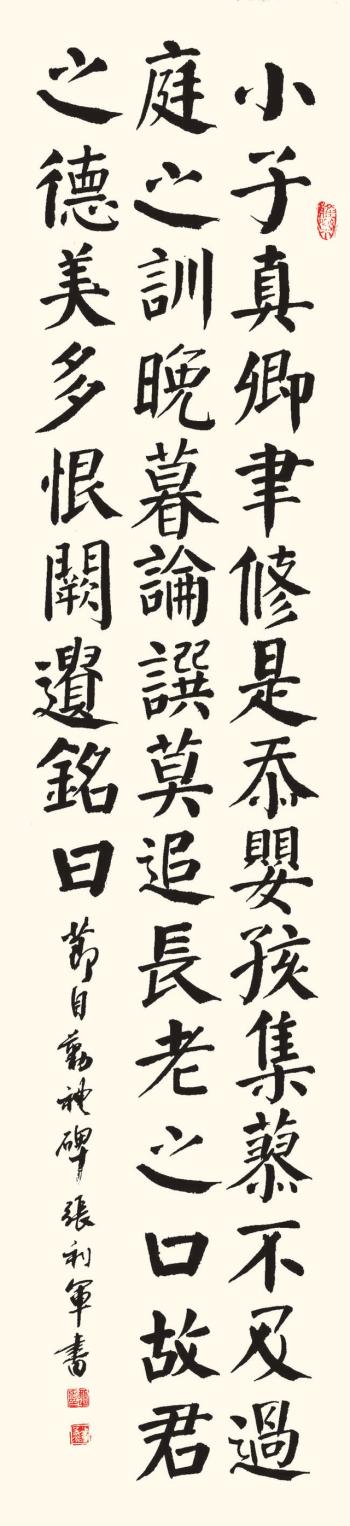 小子真卿聿修是忝嬰孩集蓼不及過
庭之訓晚暮論譔莫追長老之口故君
之德美多恨闕遺銘曰
節自勤禮碑張利軍書